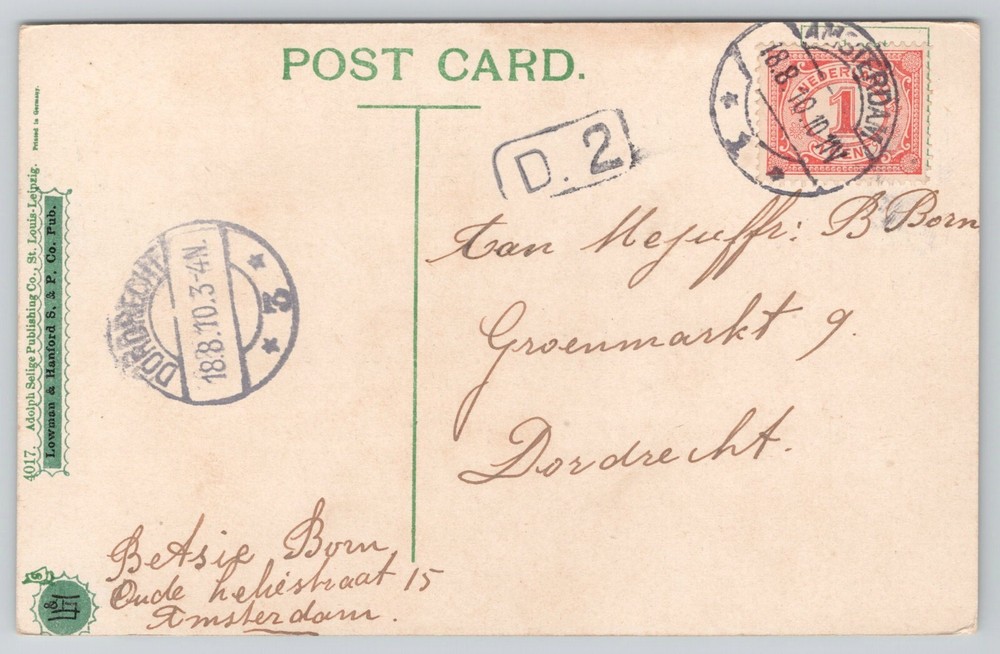 POST CARD.
AMSTERDAM
18.8.10.10-11V
3
NEDERLAND
1
CENT
D. 2
Aan Mejuffr: B Born
Groenmarkt 9.
Dordrecht.
DORDRECHT
18.8.10.3-4N.
3
Betsie Born
Oude Leliestraat 15
Amsterdam.
Printed in Germany.
4017. Adolph Selige Publishing Co., St. Louis-Leipzig.
Lowman & Hanford S. & P. Co. Pub.